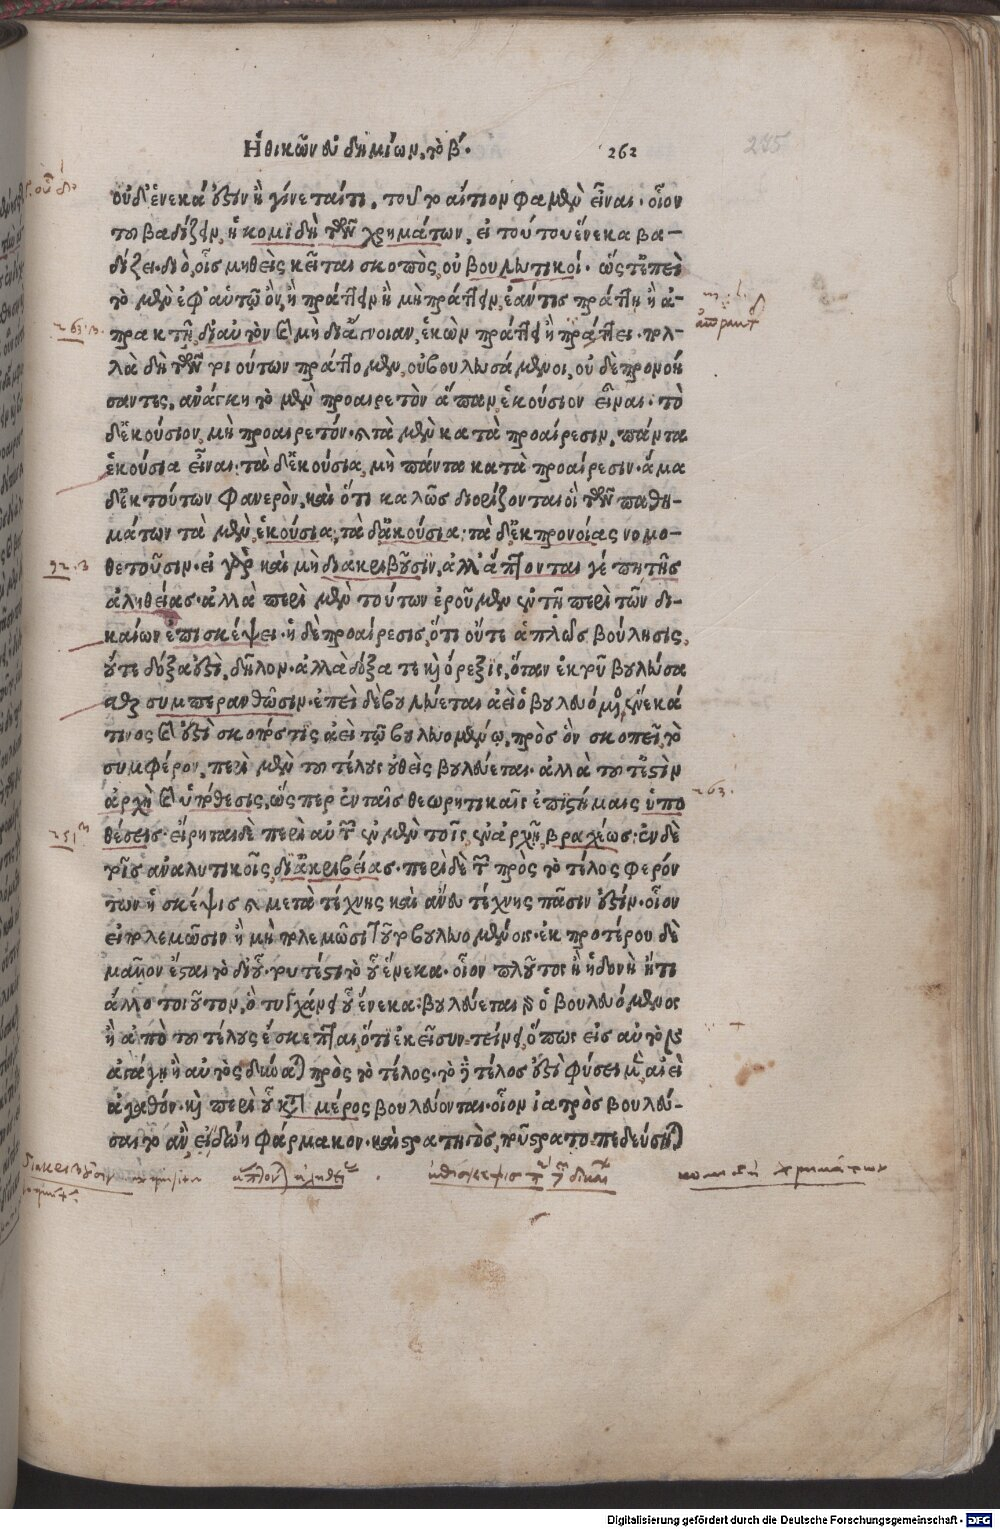 Ἠθικῶν εὐδημίων, τὸ β΄. 262
285
οὗ δ' ἕνεκά ἐστιν ἢ γίνεταί τι, τοῦτ' αἴτιον φαμὲν εἶναι· οἷον
τοῦ βαδίζειν, ἡ κομιδὴ τῶν χρημάτων, εἰ τούτου ἕνεκα βα-
δίζει· διὸ, οἷς μηθεὶς κεῖται σκοπὸς, οὐ βουλευτικοί· ὥς τ' ἐπεὶ
τὸ μὲν ἐφ' αὑτῷ ὂν, ἢ πράττειν ἢ μὴ πράττειν, ἐάν τις πράττῃ ἢ ἀ-
πρακτῇ, δι' αὑτὸν καὶ μὴ δι' ἄγνοιαν, ἑκὼν πράττει ἢ πράττει· πολ-
λὰ δὴ τῶν τοιούτων πράττομεν, οὐ βουλευσάμενοι, οὐδὲ προνοή
σαντες, ἀνάγκη τὸ μὲν προαιρετὸν ἅπαν ἑκούσιον εἶναι· τὸ
δ' ἑκούσιον, μὴ προαιρετόν· καὶ τὰ μὲν κατὰ προαίρεσιν, πάντα
ἑκούσια εἶναι· τὰ δ' ἑκούσια, μὴ πάντα κατὰ προαίρεσιν· ἅμα
δ' ἐκ τούτων φανερὸν, καὶ ὅτι καλῶς διορίζονται οἳ τῶν παθη-
μάτων τὰ μὲν ἑκούσια, τὰ δ' ἀκούσια· τὰ δ' ἐκ προνοίας νομο-
θετοῦσιν· εἰ γὰρ καὶ μὴ διακριβοῦσιν, ἀλλ' ἅπτονται γέ πῃ τῆς
ἀληθείας· ἀλλὰ περὶ μὲν τούτων ἐροῦμεν ἐν τῇ περὶ τῶν δι-
καίων ἐπισκέψει· ἡ δὲ προαίρεσις, ὅτι οὔτε ἁπλῶς βούλησις,
οὔτε δόξα ἐστὶ, δῆλον· ἀλλὰ δόξα τε καὶ ὄρεξις, ὅταν ἐκ τοῦ βουλεύσα
σθαι συμπερανθῶσιν· ἐπεὶ δὲ βουλεύεται ἀεὶ ὁ βουλευόμενος, ἕνεκά
τινος καὶ ἐστὶ σκοπός τις ἀεὶ τῷ βουλευομένῳ, πρὸς ὃν σκοπεῖ, τὸ
συμφέρον, περὶ μὲν τοῦ τέλους οὐθεὶς βουλεύεται· ἀλλὰ τοῦτ' ἐστὶν
ἀρχὴ καὶ ὑπόθεσις, ὥς περ ἐν ταῖς θεωρητικαῖς ἐπιστήμαις ὑπο
θέσεις· εἴρηται δὲ περὶ αὐτῶν ἐν μὲν τοῖς ἐν ἀρχῇ, βραχέως· ἐν δὲ
τοῖς ἀναλυτικοῖς, δι' ἀκριβείας· περὶ δὲ τῶν πρὸς τὸ τέλος φερόν
των ἡ σκέψις καὶ μετὰ τέχνης καὶ ἄνευ τέχνης πᾶσιν ἐστίν· οἷον
εἰ πολεμῶσιν ἢ μὴ πολεμῶσι τοῦτο βουλευομένοις· ἐκ προτέρου δὲ
μᾶλλον ἔσται τὸ δι' οὗ· τουτέστι τὸ οὗ ἕνεκα· οἷον πλοῦτος ἢ ἡδονὴ ἤ τι
ἄλλο τοιοῦτον, ὃ τυγχάνει οὗ ἕνεκα· βουλεύεται γὰρ ὁ βουλευόμενος
ἢ ἀπὸ τοῦ τέλους ἔσκεπται, ὅτι ἐκεῖ συντείνει, ὅπως εἰς αὑτὸν
ἀπάγῃ ἢ αὐτὸς δύναται πρὸς τὸ τέλος· τὸ δὲ τέλος ἐστὶ φύσει μὲν, αἰεὶ
ἀγαθόν· καὶ περὶ οὗ κατὰ μέρος βουλεύονται· οἷον ἰατρὸς βουλεύ-
σαιτο ἂν, εἰ δώῃ φάρμακον· καὶ στρατηγὸς, ποῦ στρατοπεδεύσηται
263.β
92.β
251
263.
ἀπρακτ
κομιδὴ χρημάτων